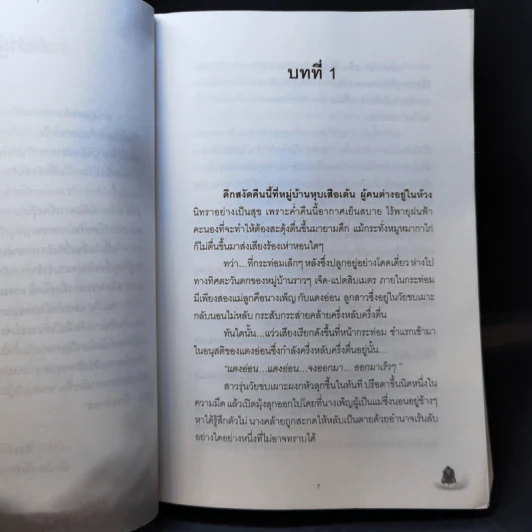 บทที่ 1
ดึกสงัดคืนนี้ที่หมู่บ้านหุบเสือเต้น ผู้คนต่างอยู่ในห้วง
นิทราอย่างเป็นสุข เพราะค่ำคืนนี้อากาศเย็นสบาย ไร้พายุฝนฟ้า
คะนองที่จะทำให้ต้องสะดุ้งตื่นขึ้นมายามดึก แม้กระทั่งหมูหมากาไก่
ก็ไม่ตื่นขึ้นมาส่งเสียงร้องเห่าหอนใดๆ
ทว่า...ที่กระท่อมเล็กๆ หลังซึ่งปลูกอยู่อย่างโดดเดี่ยว ห่างไป
ทางทิศตะวันตกของหมู่บ้านราวๆ เจ็ด-แปดสิบเมตร ภายในกระท่อม
มีเพียงสองแม่ลูกคือนางเพ็ญ กับแตงอ่อน ลูกสาวซึ่งอยู่ในวัยขบเผาะ
กลับนอนไม่หลับ กระสับกระส่ายคล้ายครึ่งหลับครึ่งตื่น
ทันใดนั้น...แว่วเสียงเรียกดังขึ้นที่หน้ากระท่อม ชำแรกเข้ามา
ในอนุสติของแตงอ่อนซึ่งกำลังครึ่งหลับครึ่งตื่นอยู่นั้น...
"แตงอ่อน...แตงอ่อน...จงออกมา... ออกมาเร็วๆ"
สาวรุ่นวัยขบเผาะผงกหัวลุกขึ้นในทันที ปรือตาขึ้นนิดหนึ่งใน
ความมืด แล้วเปิดมุ้งลุกออกไปโดยที่นางเพ็ญผู้เป็นแม่ซึ่งนอนอยู่ข้างๆ
หาได้รู้สึกตัวไม่ นางคล้ายถูกสะกดให้หลับเป็นตายด้วยอำนาจเร้นลับ
อย่างใดอย่างหนึ่งที่ไม่อาจทราบได้
7